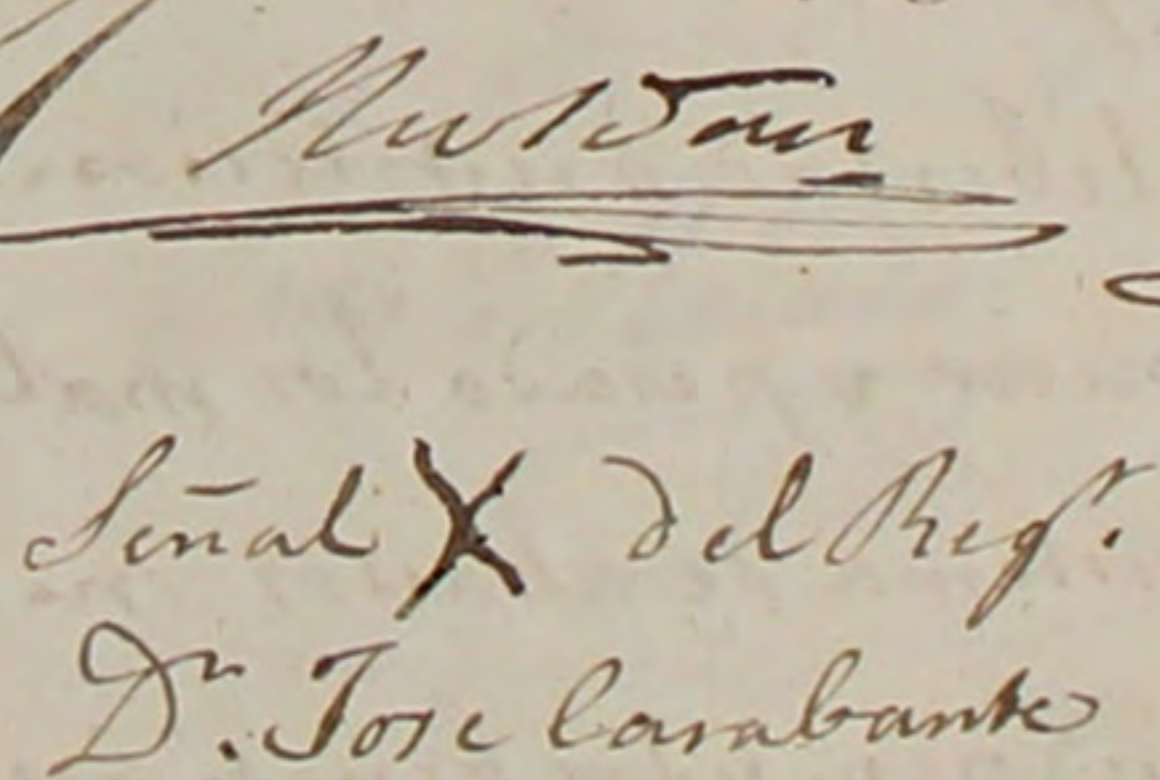 Señal X del Regr.
Dn. Jose Carabante